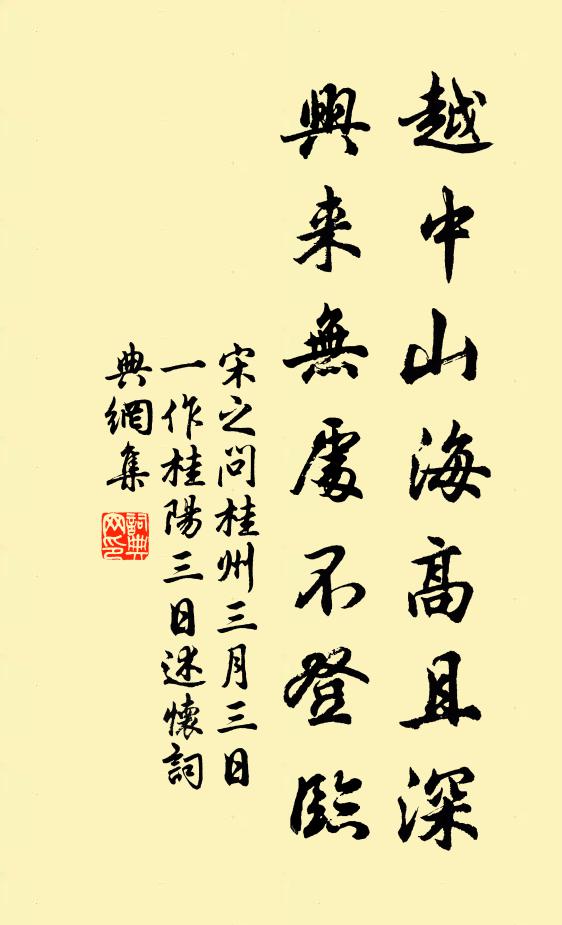 越中山海高且深
興来無處不登臨
宋之问桂州三月三日
一作桂陽三日述懷詞
典網集
詞典網印